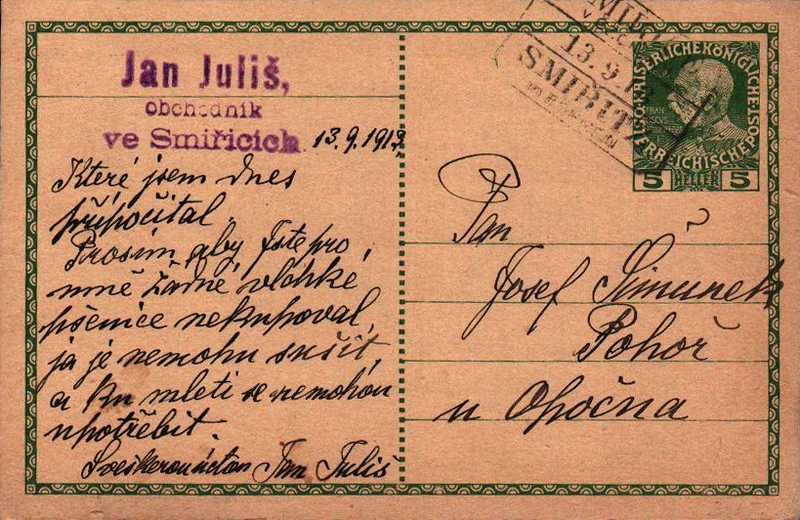 Jan Juliš,
obchodník
ve Smiřicích
13.9.1912
Které jsem dnes
připočítal.
Prosím, aby jste pro
mně žádné vlhké
pšenice nekupoval,
ja je nemohu sušit,
a ku mletí se nemohou
upotřebit.
Jan Juliš
13.9.12
SMIŘITZ
KAISERLICHE KÖNIGLICHE
ÖSTERREICHISCHE POST
5 HELLER 5
Pan
Josef Šimůnek
Pohoř
u Opočna